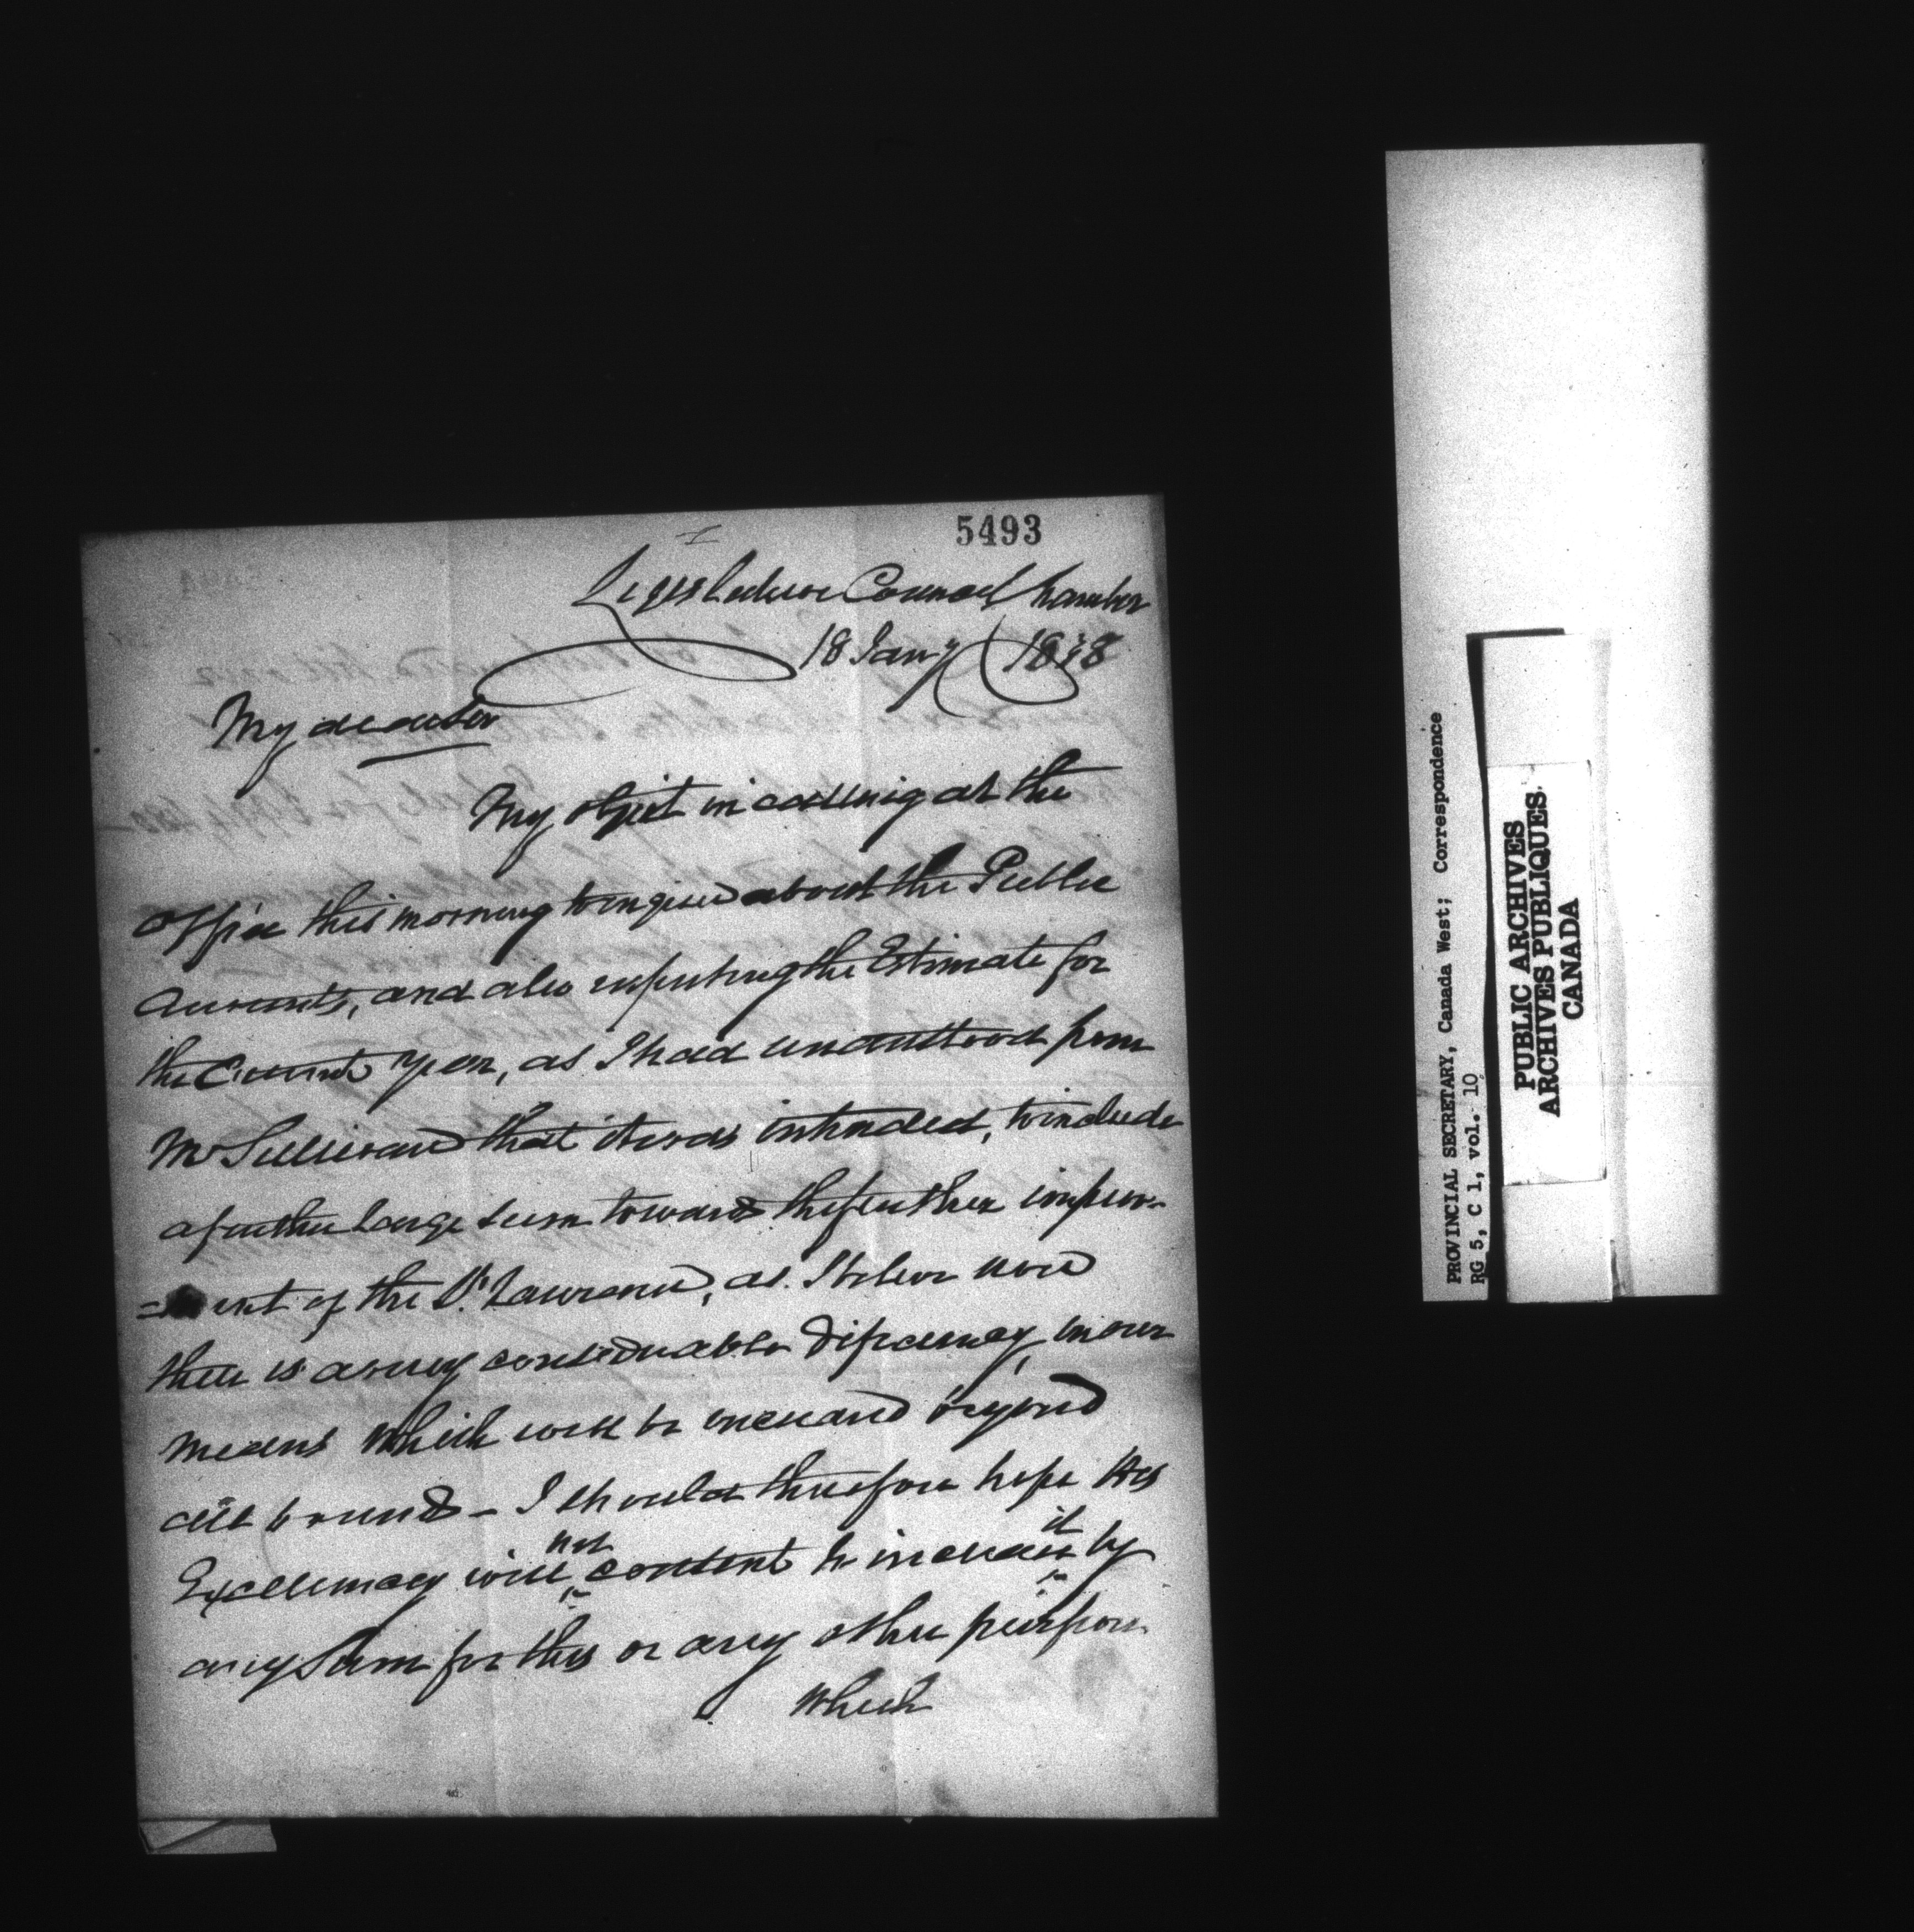 5493
Legislative Council Chamber
18 Jany 1838
My dear Sir
My object in calling at the
Office this morning to inquire about the Public
Accounts, and also respecting the Estimate for
the Current year, as I had understood from
Mr Sullivan that it was intended, to include
a further large sum towards the further improve-
=ment of the St. Lawrence, as I believe now
there is a very considerable difficiency, in our
means which will be increased beyond
all bounds - I should therefore hope His
Excellency will not content to increase it by
any Sum for this or any other purpose
which
PROVINCIAL SECRETARY, Canada West; Correspondence
RG 5, C 1, vol. 10
PUBLIC ARCHIVES
ARCHIVES PUBLIQUES
CANADA